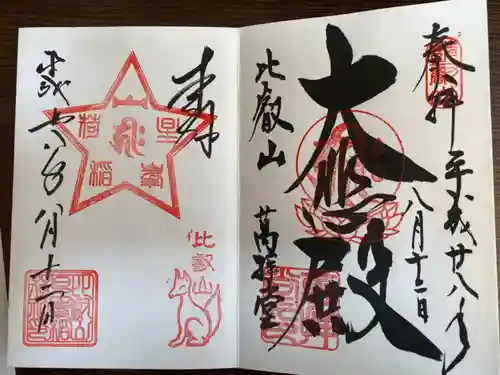 奉拝
平成廿八年
八月十二日
大悲殿
比叡山
萬拝堂
奉拝
山
星峯
稲荷
比叡山
平成廿八年八月十二日